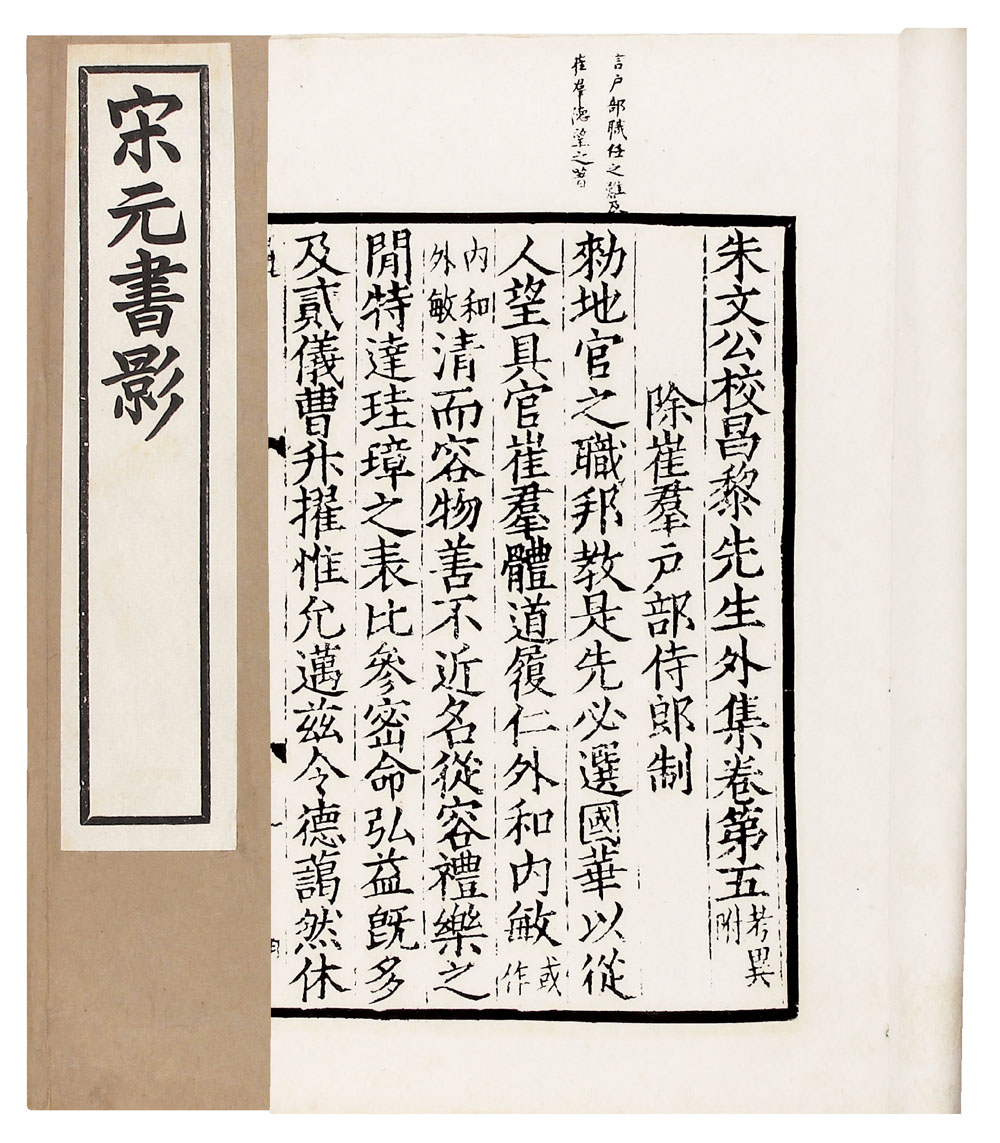 宋元書影
言户部職任之難及
崔羣德望之著
朱文公校昌黎先生外集卷第五考異附
除崔羣户部侍郎制
勑地官之職邦教是先必選國華以從
人望具官崔羣體道履仁外和内敏或作
内和外敏清而容物善不近名從容禮樂之
閒特達珪璋之表比參密命弘益既多
及貳儀曹升擢惟允邁茲令德藹然休